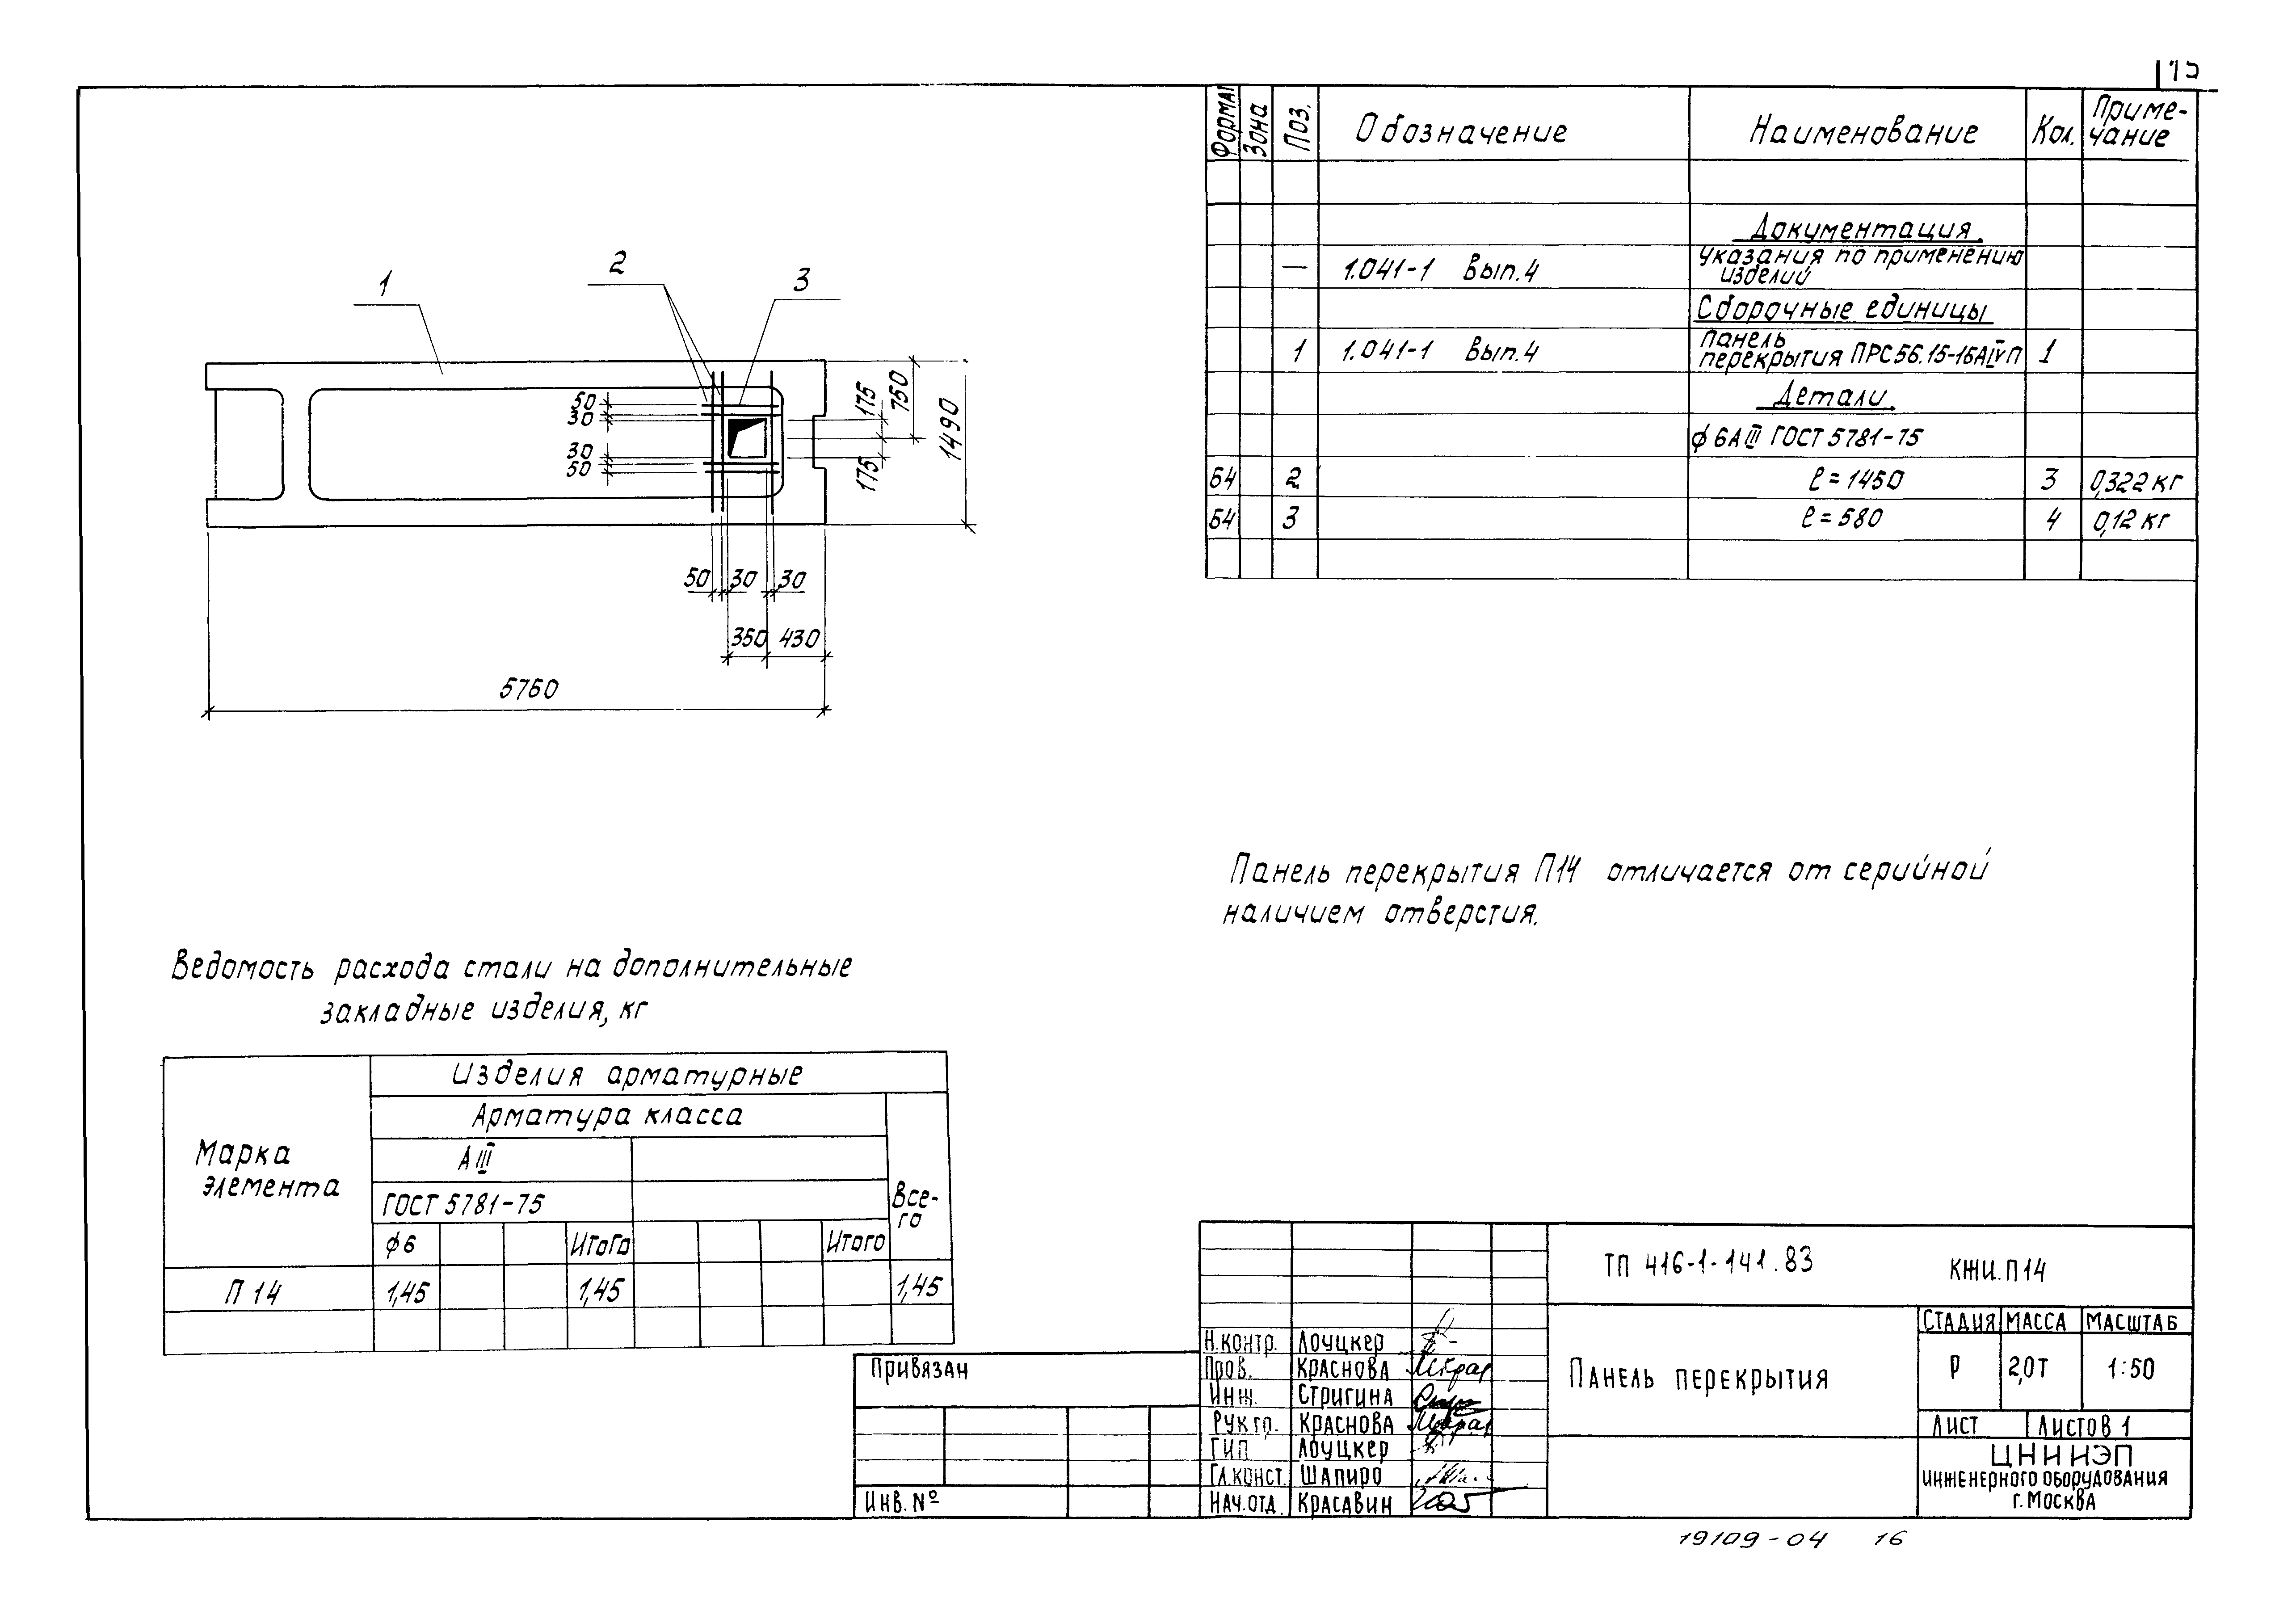 15
Формат
Зона
Поз.
Обозначение
Наименование
Кол.
Приме-
чание
Документация
— 1.041-1 Вып.4 Указания по применению
изделий
Сборочные единицы
1 1.041-1 Вып.4 Панель
перекрытия ПРС56.15-16АIVП 1
Детали
ϕ6АIII ГОСТ 5781-75
Б4 2 ℓ=1450 3 0,322 кг
Б4 3 ℓ=580 4 0,12 кг
1
2
3
50
30
30
50
175
175
750
1490
50
30
30
350
430
5760
Панель перекрытия П14 отличается от серийной
наличием отверстия.
Ведомость расхода стали на дополнительные
закладные изделия, кг
Марка
элемента
Изделия арматурные
Арматура класса
АIII
ГОСТ 5781-75
Все-
го
ϕ6 Итого Итого
П 14 1,45 1,45 1,45
Привязан
Инв. №
Н.контр. Лоуцкер
Пров. Краснова
Инж. Стригина
Рук.гр. Краснова
ГИП Лоуцкер
Гл.конст. Шапиро
Нач.отд. Красавин
ТП 416-1-141.83 КЖИ.П14
Панель перекрытия
Стадия Масса Масштаб
Р 2,0т 1:50
Лист Листов 1
ЦНИИЭП
инженерного оборудования
г. Москва
19109-04 16